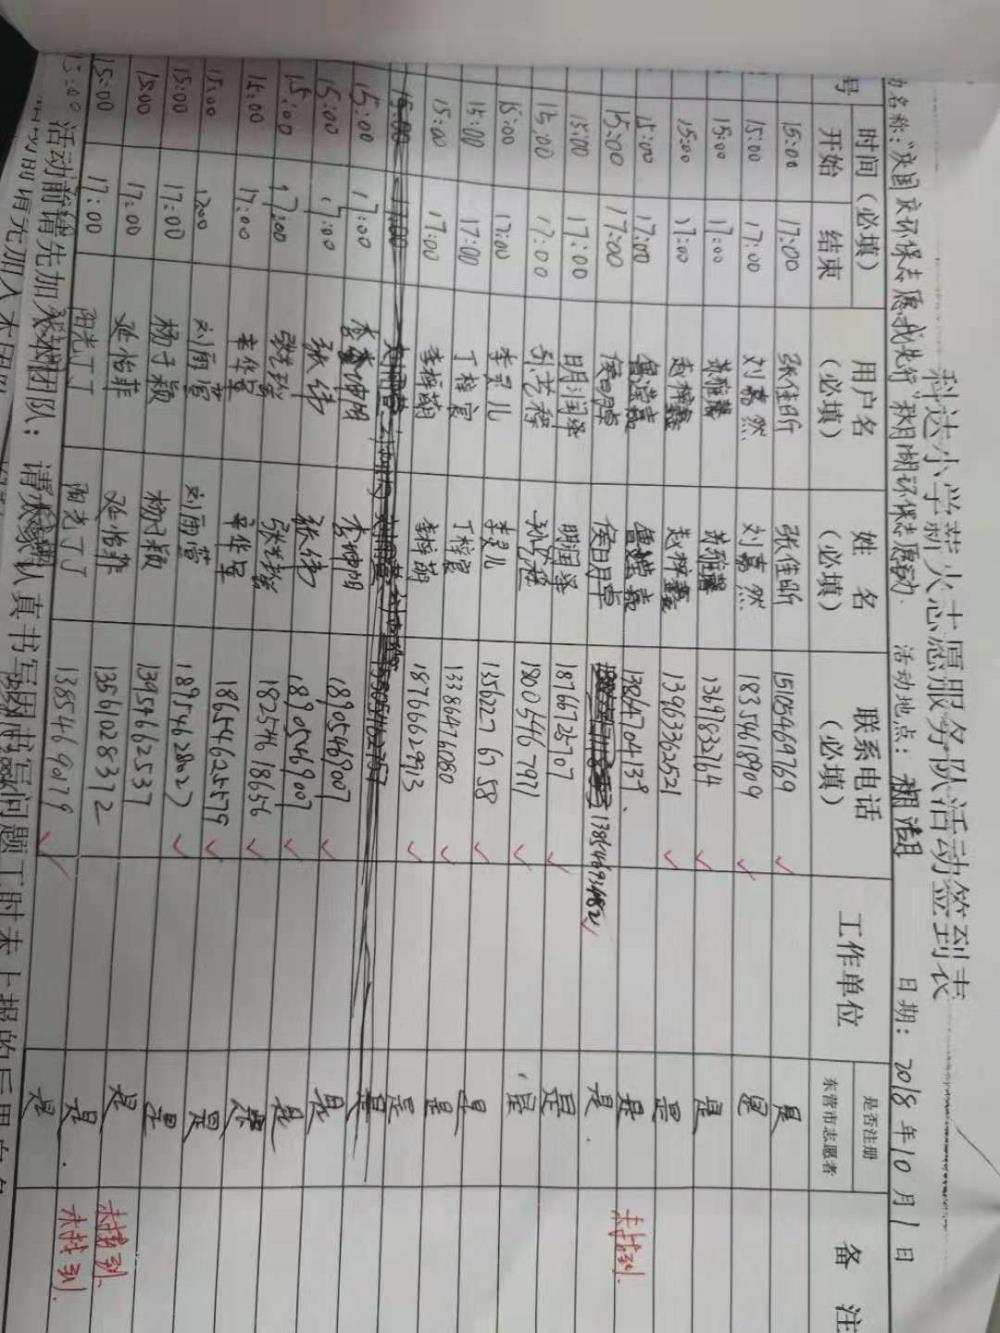 科达小学薪火志愿服务队活动签到表
动名称:"庆国庆环保志愿我先行"秋月湖环保志愿活动. 活动地点: 日期: 2018年10月1日
号 时间(必填) 用户名(必填) 姓名(必填) 联系电话(必填) 工作单位 是否注册东营市志愿者 备注
开始 结束
15:00 17:00 张佳昕 张佳昕 15105469769 是
15:00 17:00 刘嘉然 刘嘉然 18354618909 是
15:00 17:00 苏雅馨 苏雅馨 13697832764 是
15:00 17:00 赵梓鑫 赵梓鑫 13963362521 是
15:00 17:00 13864704139 是 未找到.
15:00 17:00 侯明卓 侯明卓 13864693482 是
15:00 17:00 明润泽 明润泽 18766732707 是
15:00 17:00 孙艺程 孙艺程 18005467971 是
15:00 17:00 李灵儿 李灵儿 13562276758
15:00 17:00 丁梓宸 丁梓宸 13386476080 是
15:00 17:00 李梓萌 李梓萌 18766629913 是
15:00 17:00 是
15:00 17:00 李坤明 李坤明 18905469007 是
15:00 17:00 张伟 张伟 18905469007 是
15:00 17:00 18254618656 是
15:00 17:00 辛华军 辛华军 18654625579 是
15:00 刘雨萱 刘雨萱 18954628027 是
15:00 17:00 杨子颖 杨子颖 13954662537 是
15:00 17:00 延怡菲 延怡菲 13561028372 是 未找到.
15:00 17:00 阳光丁丁 阳光丁丁 13854669079 是 未找到.
15:00 活动前请先加
团队: 请 认真书写因书写问题工时未上报的后果自负